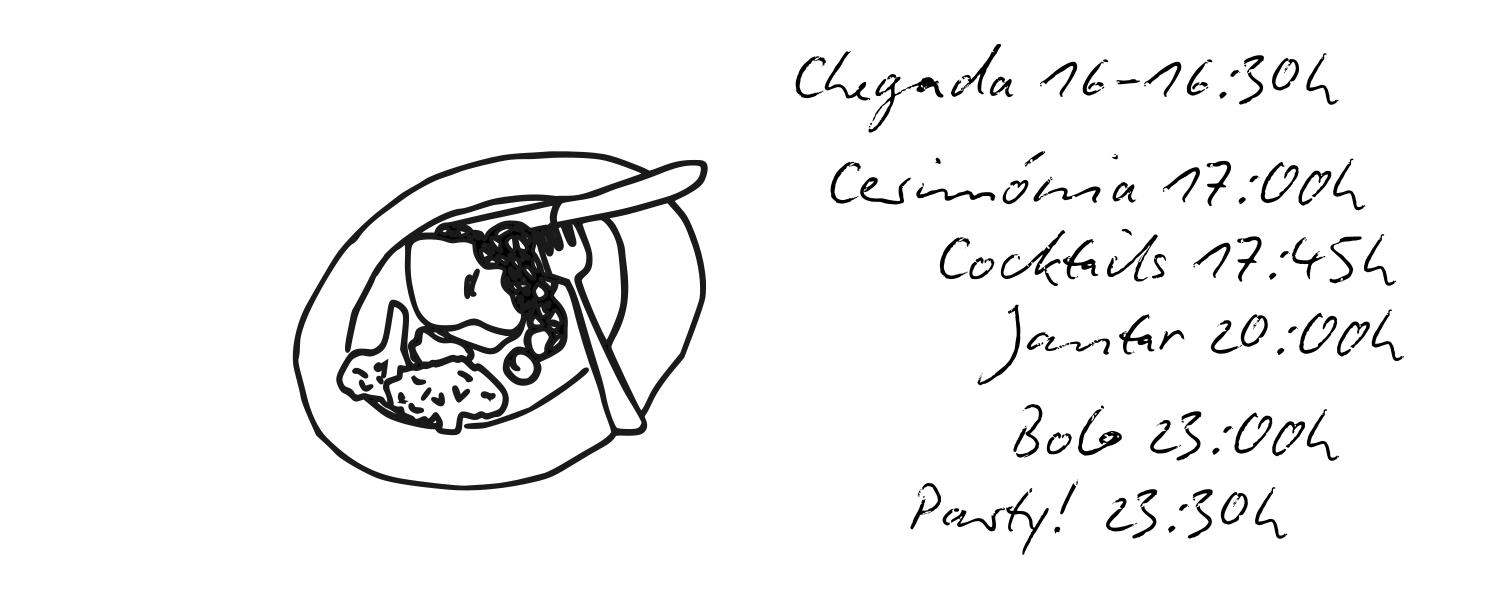 Chegada 16-16:30h
Cerimónia 17:00h
Cocktails 17:45h
Jantar 20:00h
Bolo 23:00h
Party! 23:30h